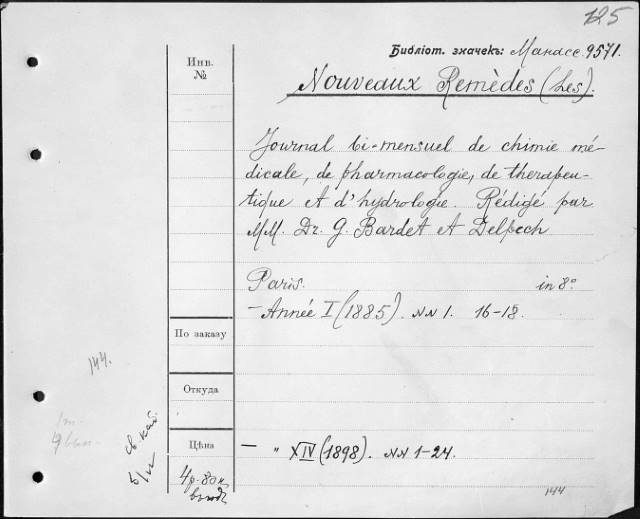 125
Библіот. значекъ: Манасс. 9571.
Инв.
№
Nouveaux Remèdes (Les).
Journal bi-mensuel de chimie mé-
dicale, de pharmacologie, de therapeu-
tique et d'hydrologie. Rédigé par
MM. Dr. G. Bardet et Delpech
Paris. in 8º
— Année I (1885). NN 1. 16-18.
По заказу
144.
Откуда
Цѣна
— " XIV (1898). NN 1-24.
4р. 80к
144